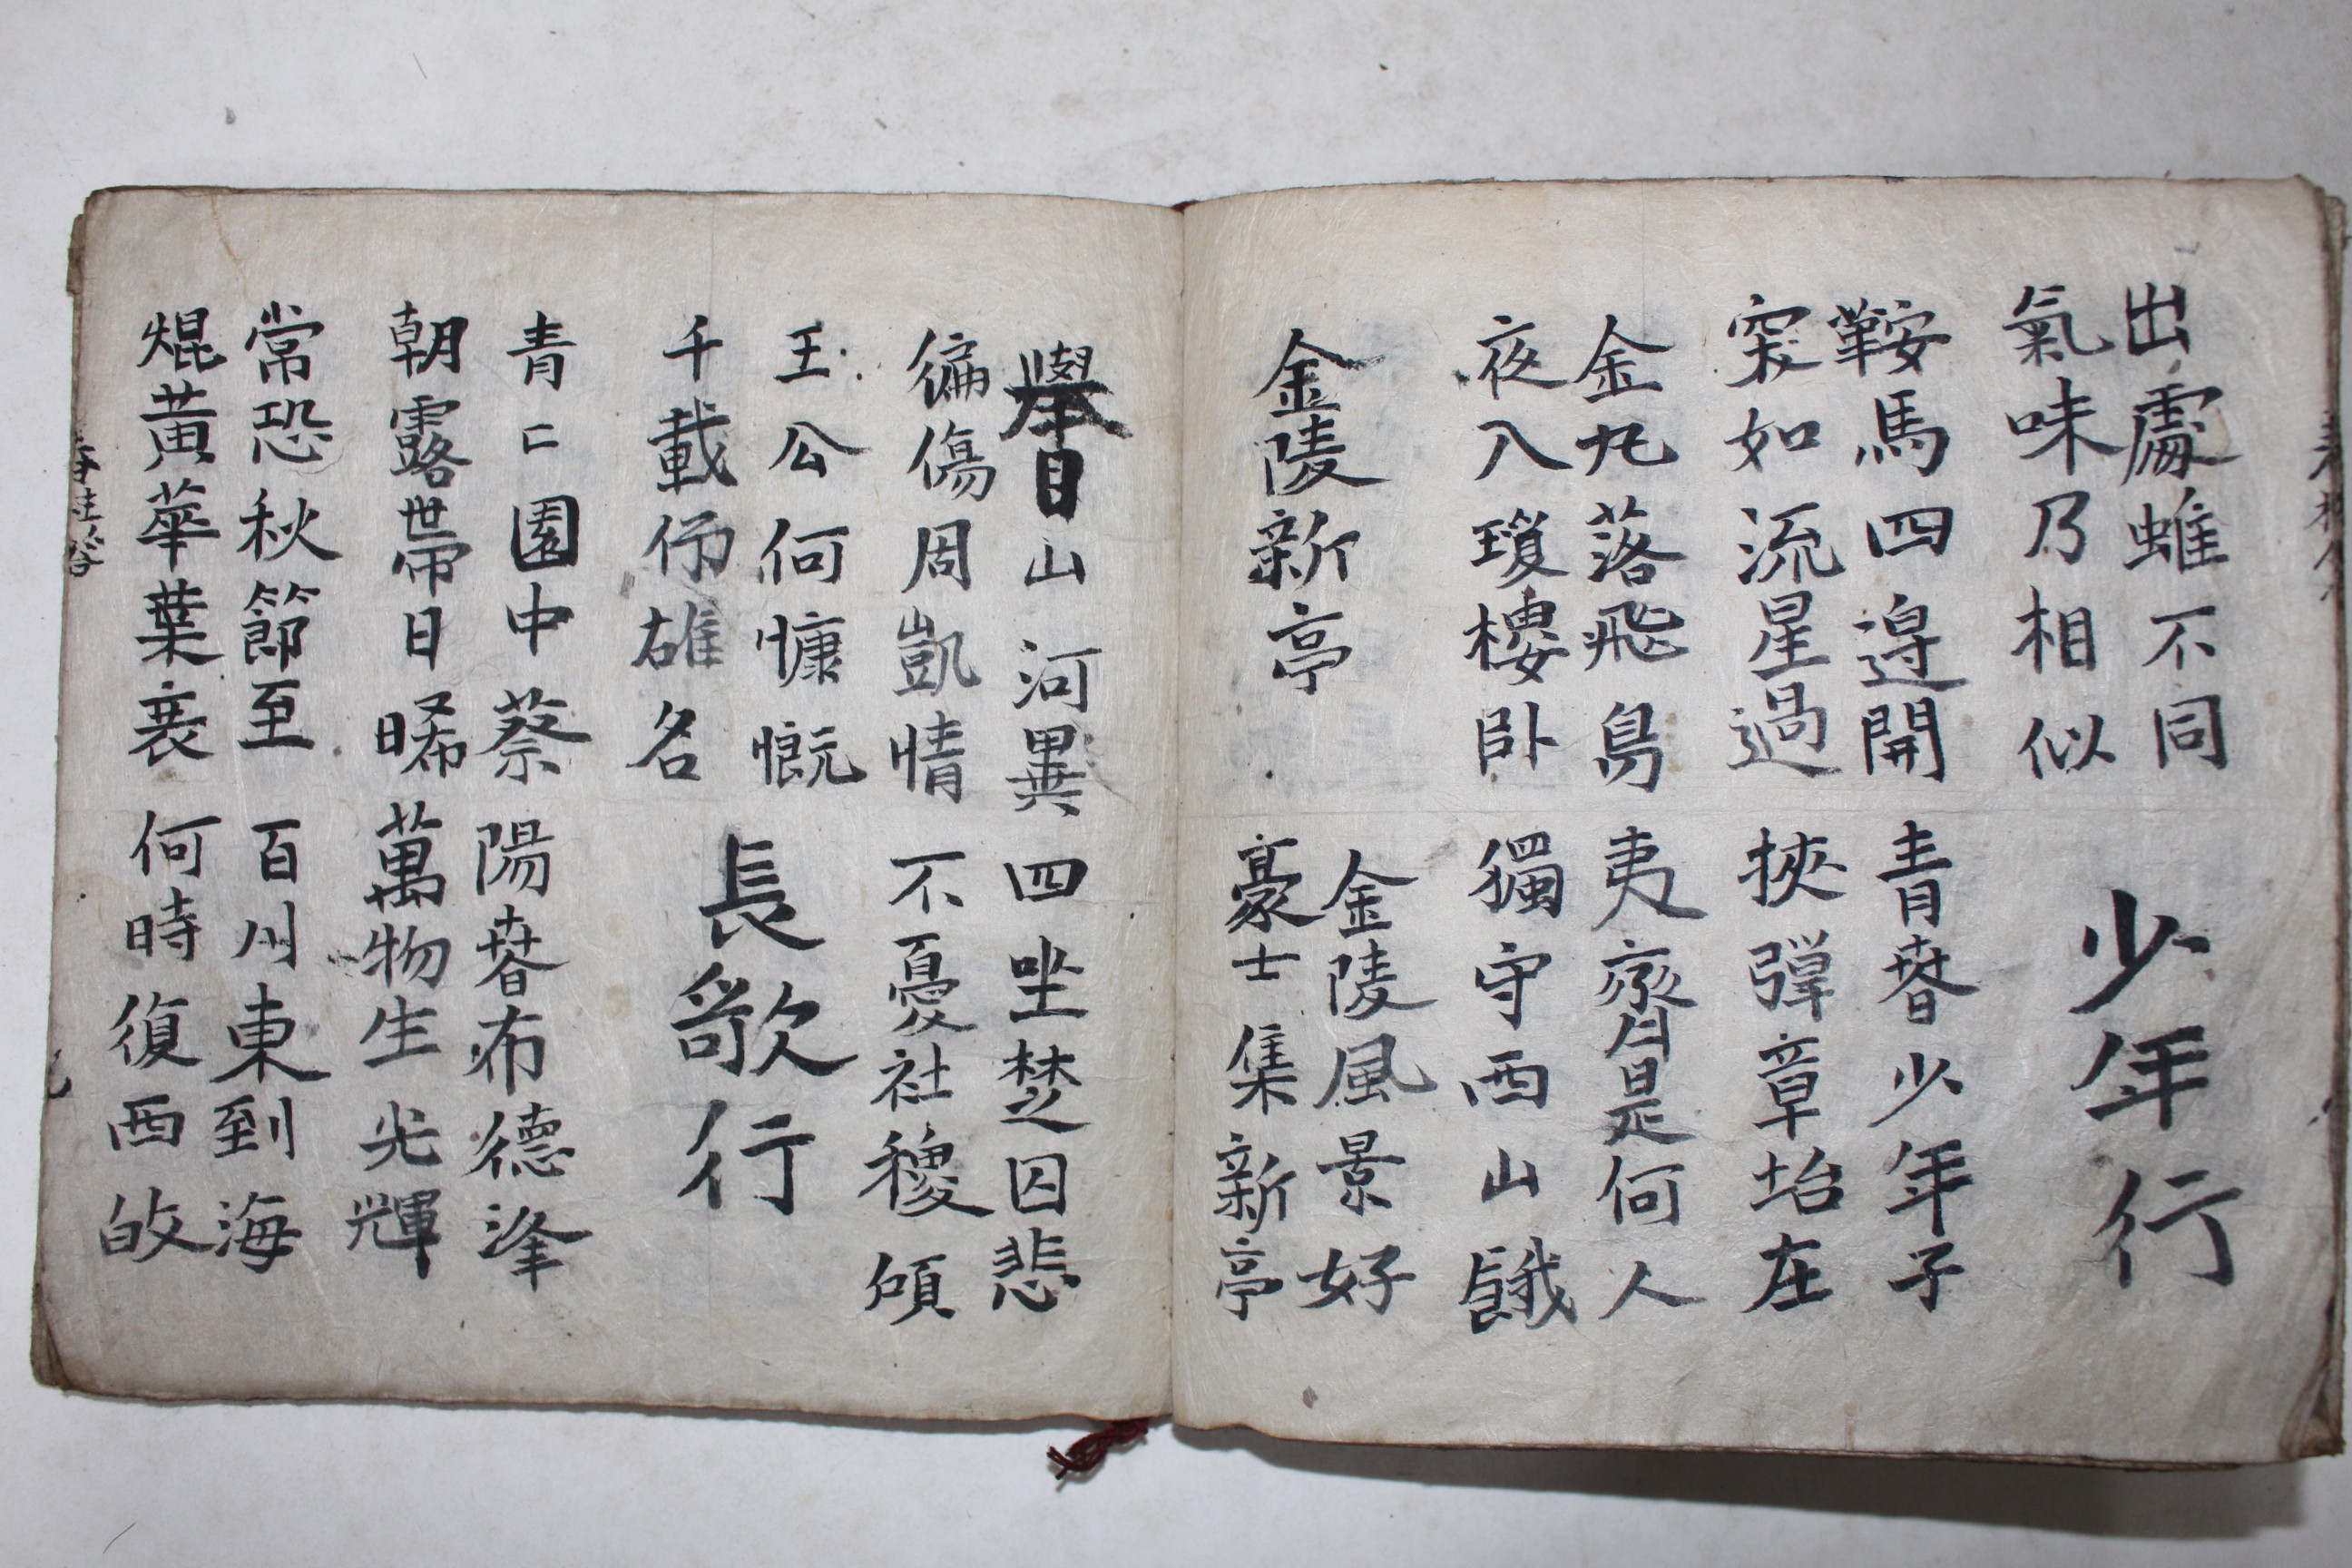 出處雖不同
氣味乃相似
少年行
青春少年子
挾彈章坮在
鞍馬四邊開
突如流星過
金丸落飛鳥
夜入瓊樓臥
夷齊是何人
獨守西山餓
金陵新亭
金陵風景好
豪士集新亭
擧目山河異
偏傷周凱情
四坐楚囚悲
不憂社稷傾
王公何慷慨
千載仰雄名
長歌行
青〻園中蔡
朝露帶日晞
陽春布德洚
萬物生光輝
常恐秋節至
焜黃華葉衰
百川東到海
何時復西皈